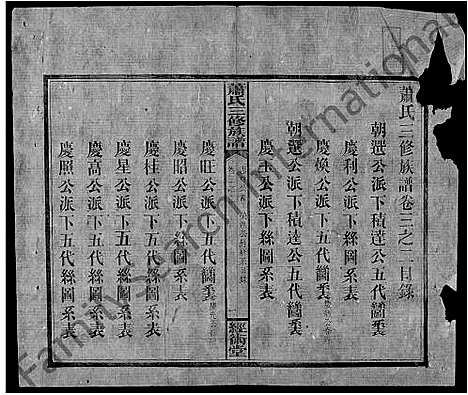 蕭氏三修族譜卷三之二目錄
朝選公派下積達公五代圖表
慶利公派下絲圖系表
慶煥公派下五代圖表
朝選公派下積達公五代圖表
慶丰公派下絲圖系表
蕭氏三修族譜
經術堂
慶旺公派下五代圖表
慶昭公派下絲圖系表
慶桂公派下五代絲圖系表
慶星公派下五代絲圖系表
慶高公派下五代絲圖系表
慶照公派下五代絲圖系表
FamilySearch International